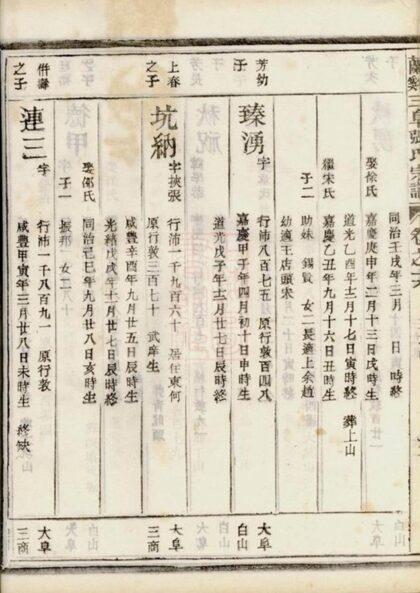 同治壬戌年三月 日 時終
娶徐氏 嘉慶庚申年二月十三日戌時生
道光乙酉年十二月十七日寅時終 葬上山
繼宋氏 嘉慶乙丑年九月十六日丑時生
子二 助妹 錫賢 女二長適上余趙
幼適王店頭宋
芳幼
子 臻湧 字 行沛八百七五 原行敦百四八
嘉慶甲子年四月初十日申時生
道光戊子年十二月廿七日辰時終
上春
之子 坑納 字挾張 行沛一千九百六十 居住東何
原行敦三百七十 武庠生
咸豐辛酉年九月廿五日辰時生
光緒戊戌年十一月廿七日辰時終
娶邵氏 同治己巳年九月廿八日亥時生
子一 振邦 女二
併壽
之子 連三 字 行沛一千八百九一 原行敦
咸豐甲寅年三月廿八日未時生 終缺
大阜
白山
大阜
三商
大阜
三商